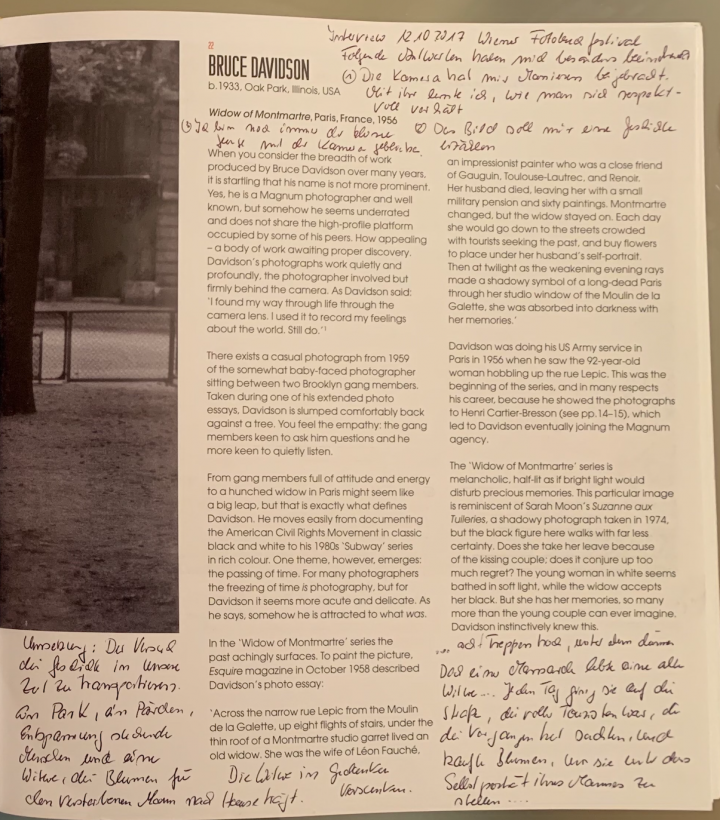 Interview 12.10.2017 Wiener Fotobuch festival
Folgende haben mich besonders beeindruckt
① Die Kamera hat mir Manieren beigebracht.
Mit ihr lernte ich, wie man sich respekt-
voll verhält
② Das Bild soll mir eine Geschichte
erzählen
③ Ich bin noch immer der kleine
Junge mit der Kamera geblieben.
22
BRUCE DAVIDSON
b.1933, Oak Park, Illinois, USA
Widow of Montmartre, Paris, France, 1956
When you consider the breadth of work
produced by Bruce Davidson over many years,
it is startling that his name is not more prominent.
Yes, he is a Magnum photographer and well
known, but somehow he seems underrated
and does not share the high-profile platform
occupied by some of his peers. How appealing
– a body of work awaiting proper discovery.
Davidson's photographs work quietly and
profoundly, the photographer involved but
firmly behind the camera. As Davidson said:
'I found my way through life through the
camera lens. I used it to record my feelings
about the world. Still do.'¹
There exists a casual photograph from 1959
of the somewhat baby-faced photographer
sitting between two Brooklyn gang members.
Taken during one of his extended photo
essays, Davidson is slumped comfortably back
against a tree. You feel the empathy: the gang
members keen to ask him questions and he
more keen to quietly listen.
From gang members full of attitude and energy
to a hunched widow in Paris might seem like
a big leap, but that is exactly what defines
Davidson. He moves easily from documenting
the American Civil Rights Movement in classic
black and white to his 1980s 'Subway' series
in rich colour. One theme, however, emerges:
the passing of time. For many photographers
the freezing of time is photography, but for
Davidson it seems more acute and delicate. As
he says, somehow he is attracted to what was.
In the 'Widow of Montmartre' series the
past achingly surfaces. To paint the picture,
Esquire magazine in October 1958 described
Davidson's photo essay:
'Across the narrow rue Lepic from the Moulin
de la Galette, up eight flights of stairs, under the
thin roof of a Montmartre studio garret lived an
old widow. She was the wife of Léon Fauché,
an impressionist painter who was a close friend
of Gauguin, Toulouse-Lautrec, and Renoir.
Her husband died, leaving her with a small
military pension and sixty paintings. Montmartre
changed, but the widow stayed on. Each day
she would go down to the streets crowded
with tourists seeking the past, and buy flowers
to place under her husband's self-portrait.
Then at twilight as the weakening evening rays
made a shadowy symbol of a long-dead Paris
through her studio window of the Moulin de la
Galette, she was absorbed into darkness with
her memories.'
Davidson was doing his US Army service in
Paris in 1956 when he saw the 92-year-old
woman hobbling up the rue Lepic. This was the
beginning of the series, and in many respects
his career, because he showed the photographs
to Henri Cartier-Bresson (see pp.14–15), which
led to Davidson eventually joining the Magnum
agency.
The 'Widow of Montmartre' series is
melancholic, half-lit as if bright light would
disturb precious memories. This particular image
is reminiscent of Sarah Moon's Suzanne aux
Tuileries, a shadowy photograph taken in 1974,
but the black figure here walks with far less
certainty. Does she take her leave because
of the kissing couple; does it conjure up too
much regret? The young woman in white seems
bathed in soft light, while the widow accepts
her black. But she has her memories, so many
more than the young couple can ever imagine.
Davidson instinctively knew this.
Umsetzung: Der Versuch
die Geschichte in unsere
Zeit zu transportieren.
Ein Park, ein Pärchen,
Entspannung suchende
Menschen und eine
Witwe, die Blumen für
den verstorbenen Mann nach Hause trägt.
Die Witwe ins Gedenken
versunken.
... acht Treppen hoch, unter dem dünnen
Dach einer Mansarde lebte eine alte
Witwe ... Jeden Tag ging sie auf die
Straße, die voller Touristen war, die
die Vergangenheit suchten, und
kaufte Blumen, um sie unter das
Selbstporträt ihres Mannes zu
stellen ....